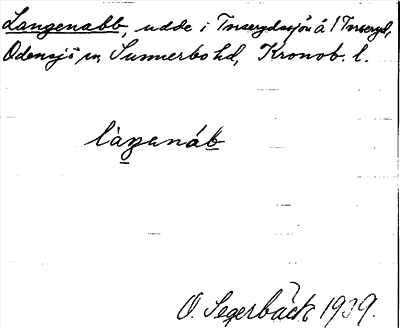 Langenabb, udde i Tnserydssjön å 1 Tnseryd,
Odensjö sn, Sunnerbo hd, Kronob. l.
làŋenáb
O. Segerbäck 1939.